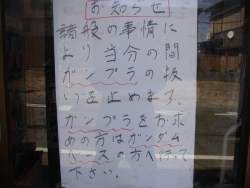 お知らせ
諸般の事情に
より当分の間
ガンプラの扱
いを止めます。
ガンプラをお求
めの方はガンダム
ベースの方へ行って
下さい。